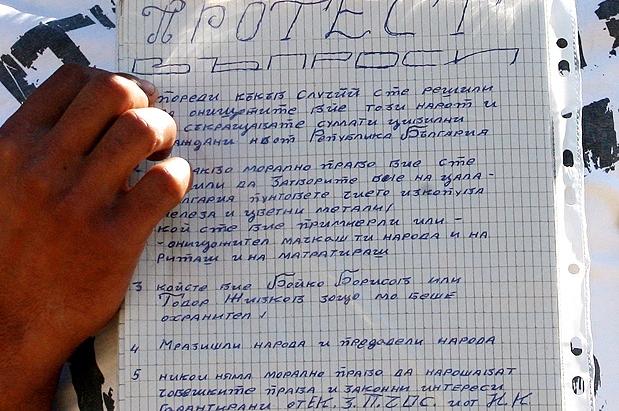 ПРОТЕСТ
ВЪПРОСИ
поРЕДИ КЪКЪВ СЛУЧИЙ СТЕ РЕШИЛИ
ОНИЩЕТИТЕ ВИЕ ТОЗИ НАРОТ И
СЪКРАЩАВАТЕ СУМАТИ ЦИВИЛНИ
РЕПУБЛИКА БЪЛГАРИЯ
МОРАЛНО ПРАВО ВИЕ СТЕ
ДА ЗАТВОРИТЕ ВИЕ НА ЦАЛА-
ПУНТОВЕТЕ ЧИЕТО ИЗКОПУВА
И ЦВЕТНИ МЕТАЛИ/
КОЙ СТЕ ВИЕ ПРИМНЕРЛИ ИЛИ-
-ОНИЩОЖИТЕЛ МАЧКАШ ТИ НАРОДА И НА
РИТАШ И НА МАТРАТИРАШ
3 КОЙСТЕ ВИЕ БОЙКО БОРИСОВ ИЛИ
ТОДОР ЖИВКОВ ЗОЩО МО БЕШЕ
ОХРАНИТЕЛ/
4 МРАЗИШЛИ НАРОДА И ПРЕДАДЕЛИ НАРОДА
5 НИКОИ НЯМА МОРАЛНО ПРАВО ДА НАРОШАВАТ
ЧОВЕШКИТЕ ПРАВА И ЗАКОННИ ИНТЕРЕСИ
ГАРАНТИРАНИ ОТ ЕК. З.П.ЧОС. И ОТ Н.К